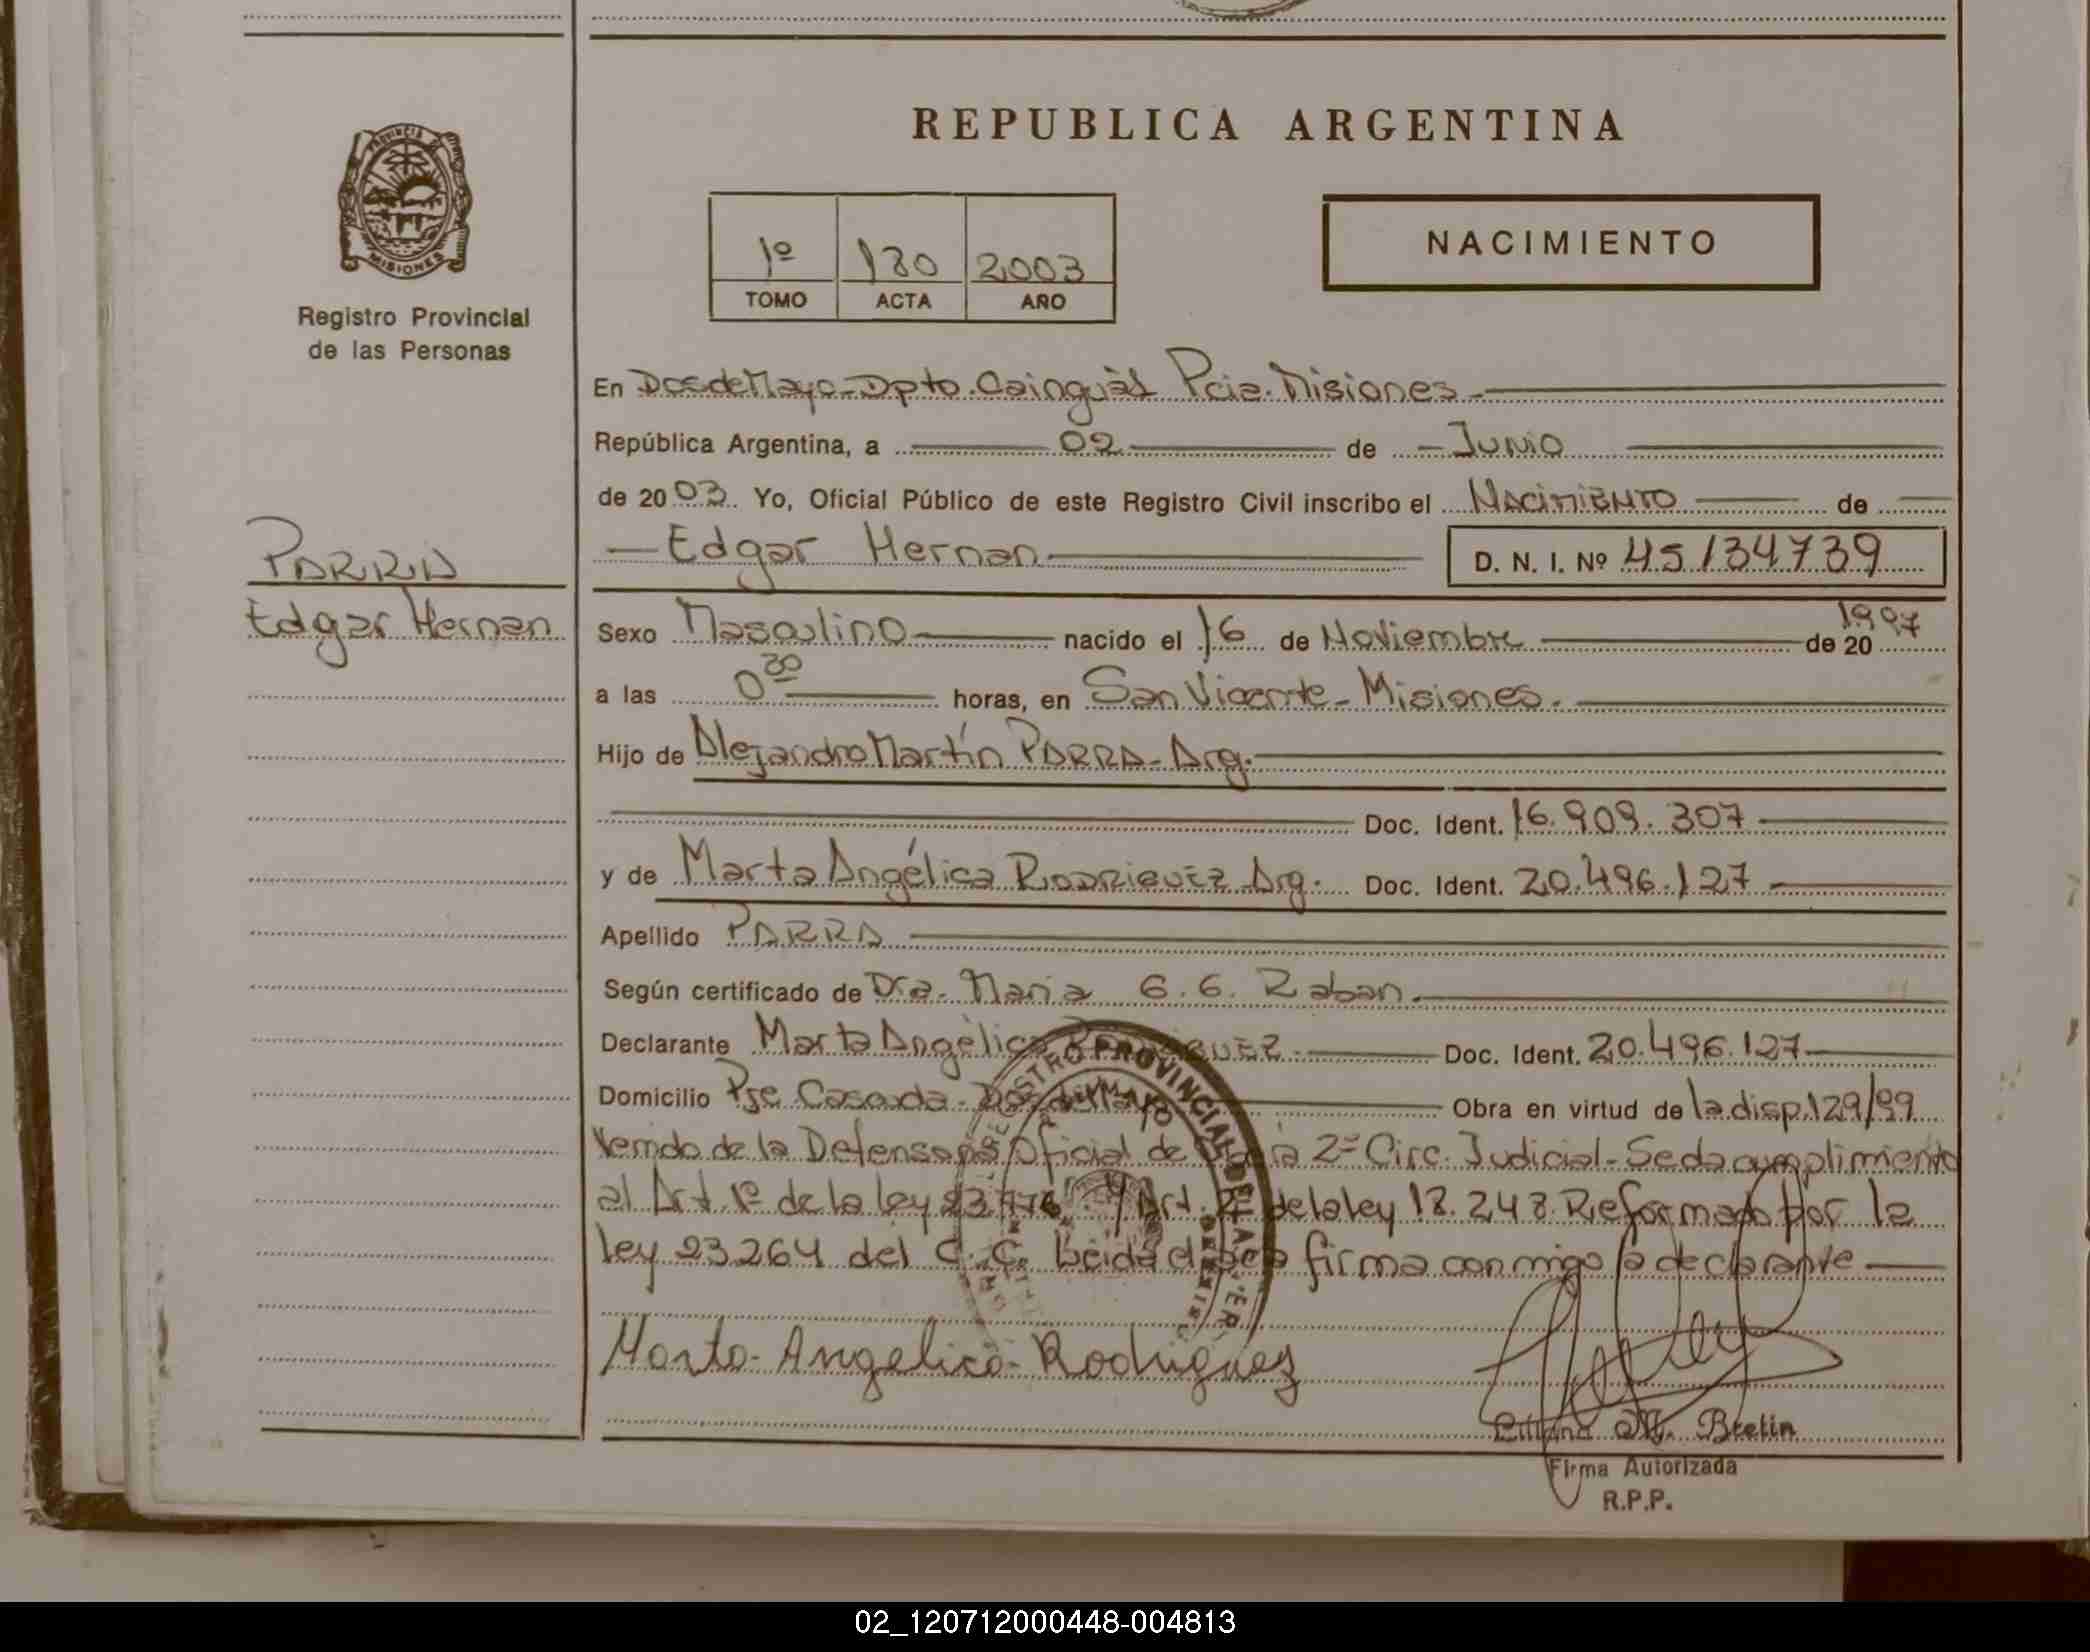 REPUBLICA ARGENTINA
PROVINCIA
MISIONES
Registro Provincial
de las Personas
1º 180 2003
TOMO ACTA AÑO
NACIMIENTO
En Dos de Mayo - Dpto. Cainguás Pcia. Misiones
República Argentina, a 02 de Junio
de 2003. Yo, Oficial Público de este Registro Civil inscribo el NACIMIENTO de
Edgar Hernan D. N. I. Nº 45134739
PARRA
Edgar Hernan
Sexo Masculino nacido el 16 de Noviembre de 20 1997
a las 0 30 horas, en San Vicente - Misiones.
Hijo de Alejandro Martín PARRA - Arg.
Doc. Ident. 16.909.307
y de Marta Angélica RODRIGUEZ Arg. Doc. Ident. 20.496.127
Apellido PARRA
Según certificado de Dra. Maria G. G. Raban.
Declarante Marta Angélica RODRIGUEZ Doc. Ident. 20.496.127
Domicilio Pje Casada - Dos de Mayo Obra en virtud de la disp. 129/99
Venido de la Defensoria Oficial de 2º Circ. Judicial - Se da cumplimiento
al Art. 1º de la ley y Art. de la ley 18.248 Reformado por la
ley 23264 del C. C. Leida firma conmigo la declarante
REGISTRO PROVINCIAL DE LAS PER
DOS DE MAYO
Marta Angelica Rodriguez
Liliana M. Bretin
Firma Autorizada
R.P.P.
02_120712000448-004813